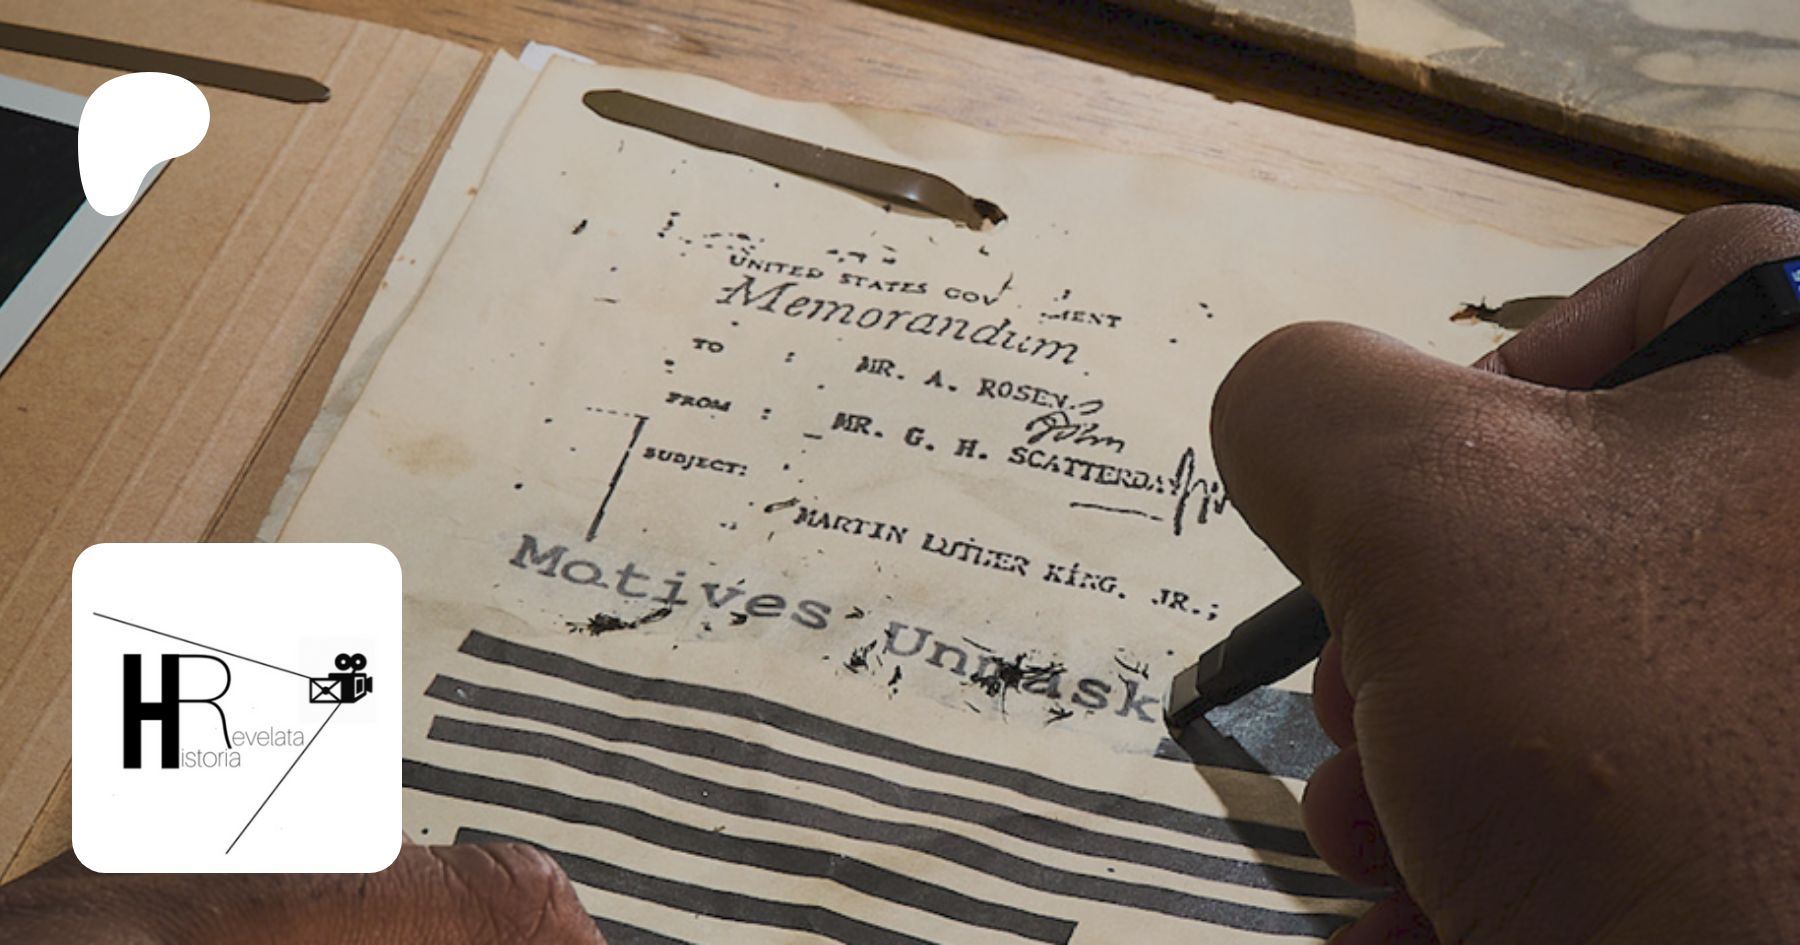 UNITED STATES GOV MENT
Memorandum
TO : MR. A. ROSEN
FROM : MR. G. H. SCATTERDAY
John
SUBJECT:
MARTIN LUTHER KING, JR.;
Motives Unmask
HR
evelata
istoria